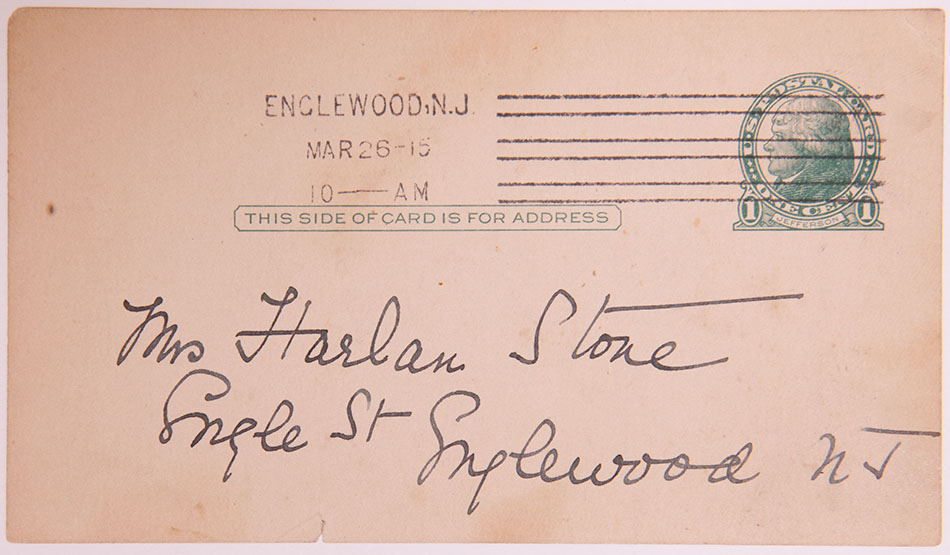 ENGLEWOOD, N.J.
MAR 26-15
10 — AM
U.S. POSTAL CARD
ONE CENT
1 JEFFERSON 1
THIS SIDE OF CARD IS FOR ADDRESS
Mrs Harlan Stone
Engle St Englewood NJ